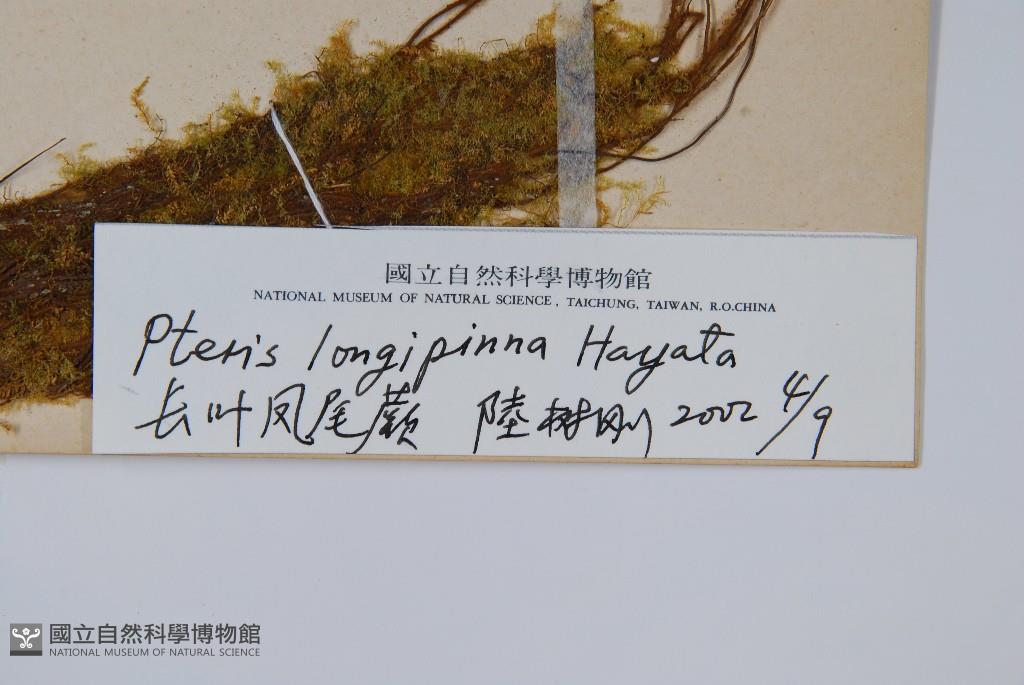 國立自然科學博物館
NATIONAL MUSEUM OF NATURAL SCIENCE, TAICHUNG, TAIWAN, R.O.CHINA
Pteris longipinna Hayata
长叶凤尾蕨 陸樹刚 2002 4/9
國立自然科學博物館
NATIONAL MUSEUM OF NATURAL SCIENCE